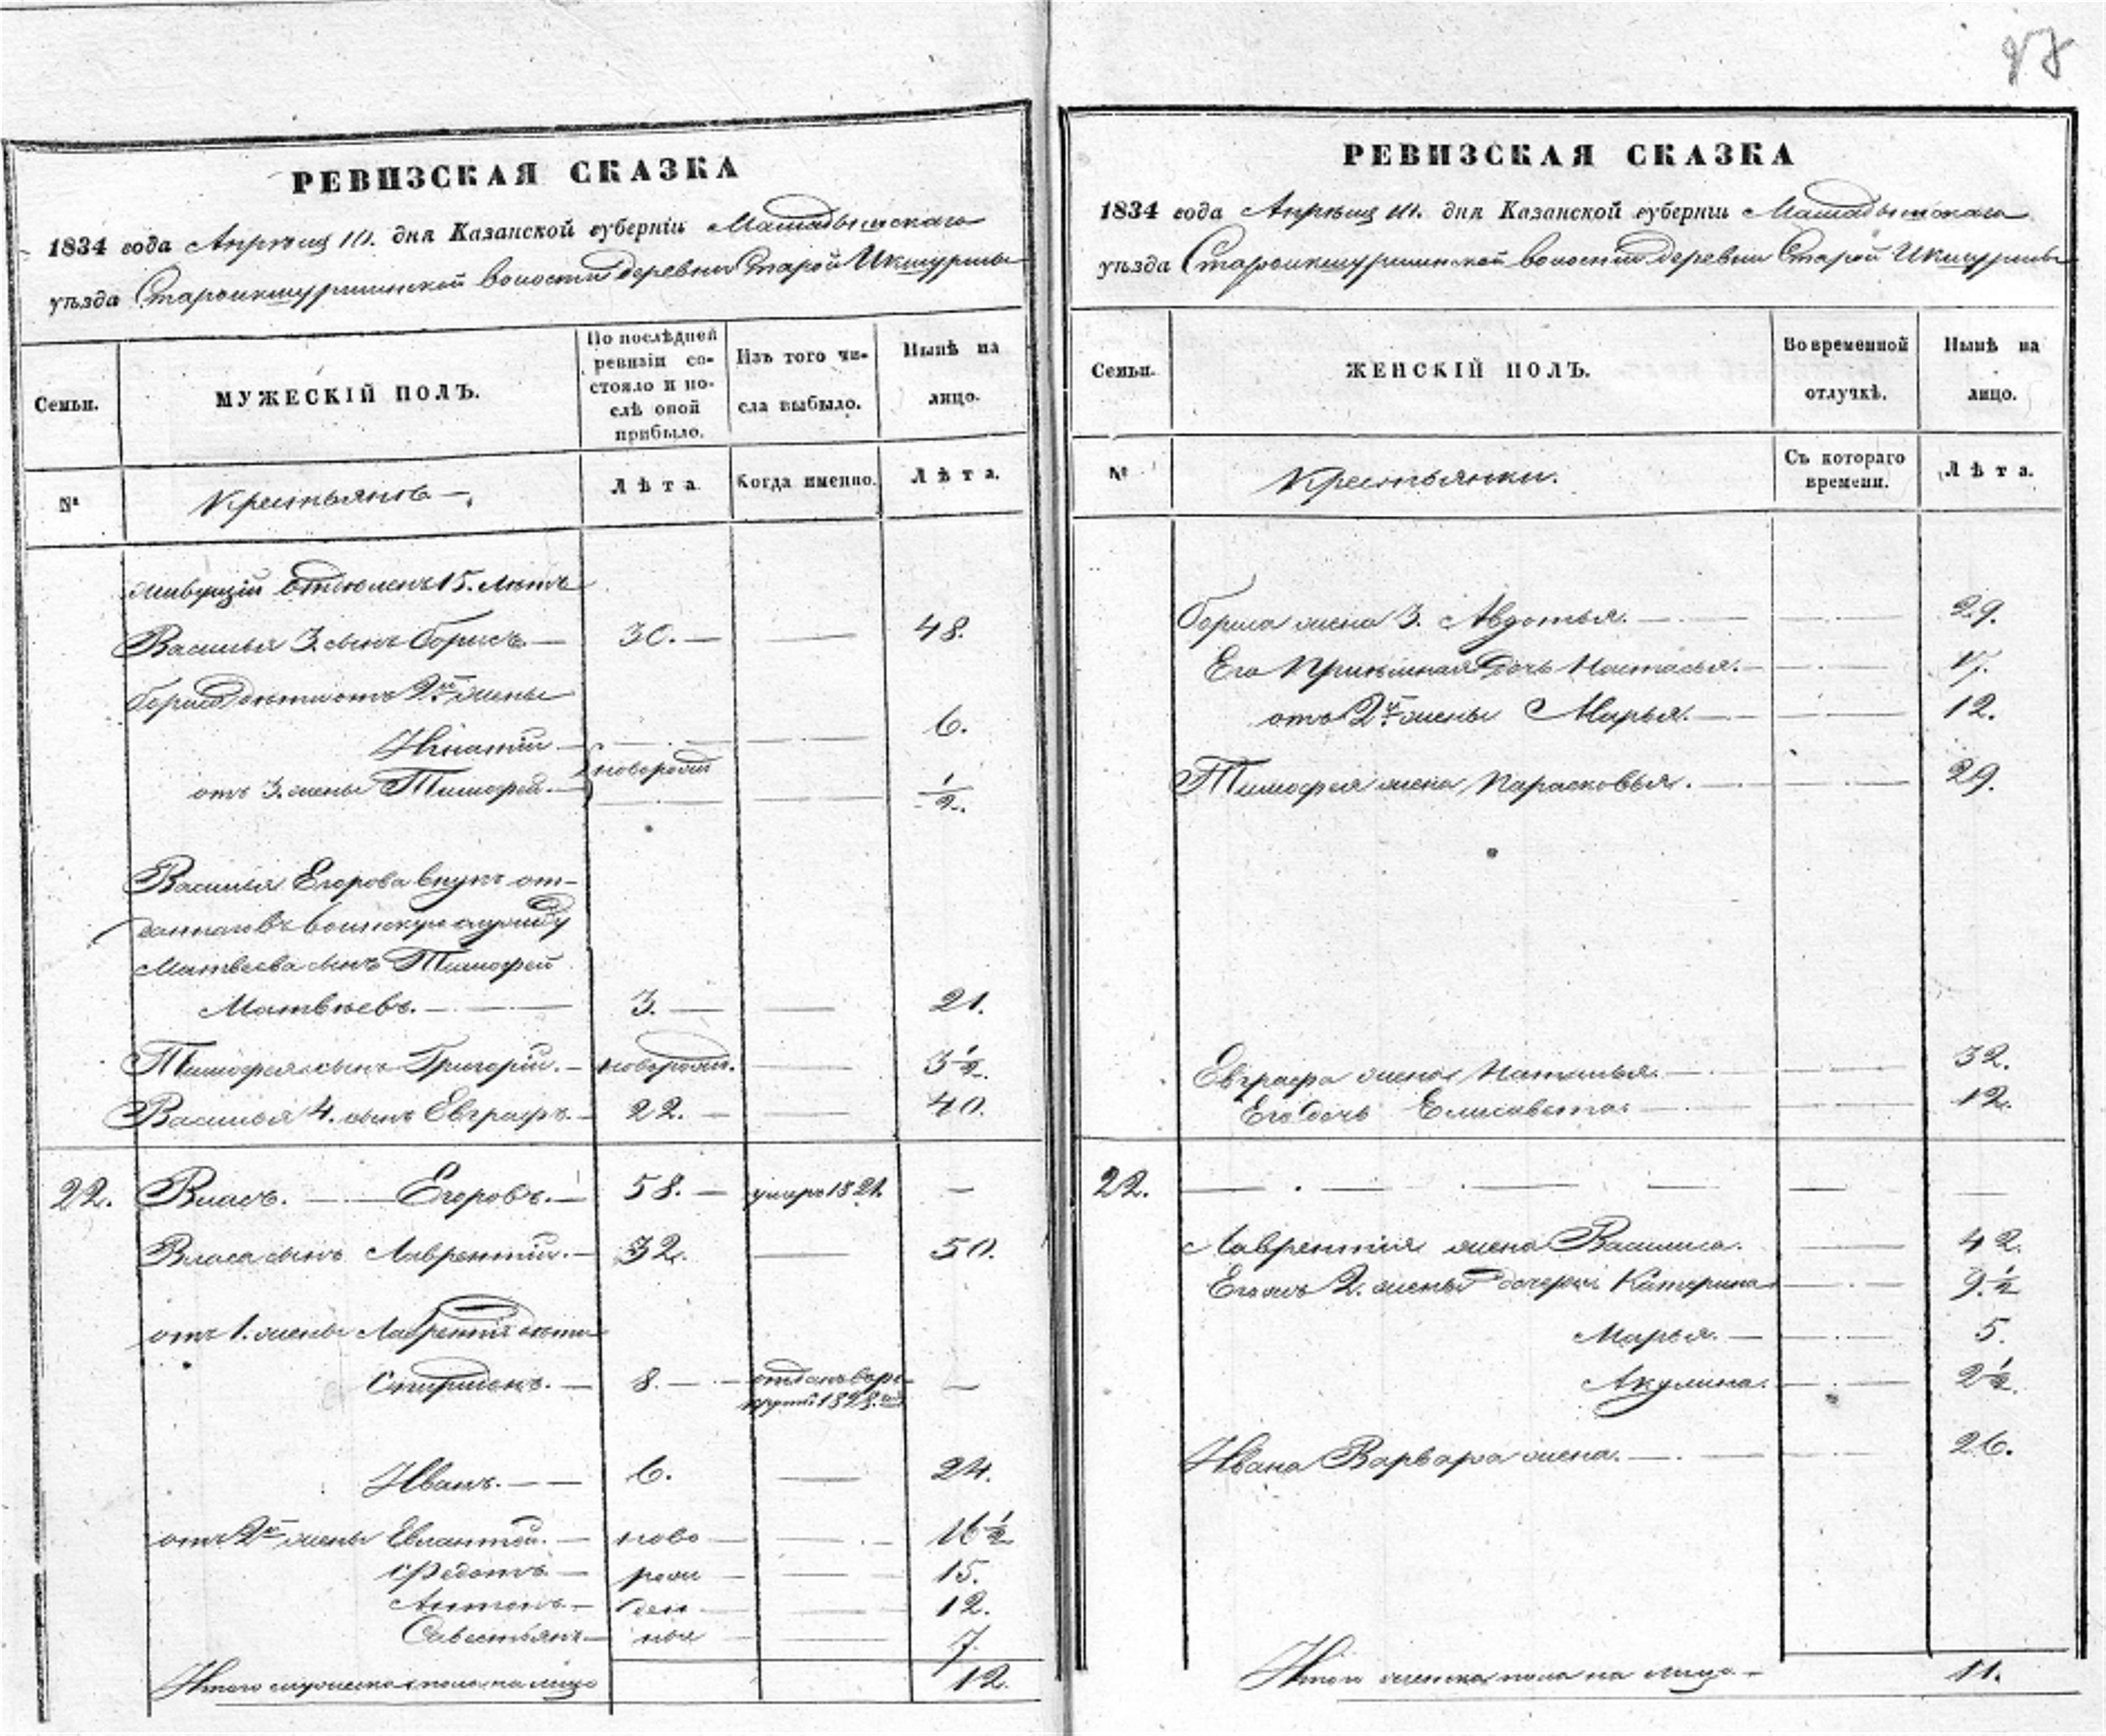 РЕВИЗСКАЯ СКАЗКА
1834 года Апреля 10. дня Казанской губерніи Мамадышскаго
уѣзда Староикшурминской волости деревни Старой Икшурмы
Семьи.
МУЖЕСКІЙ ПОЛЪ.
По послѣдней ревизіи состояло и послѣ оной прибыло.
Изъ того числа выбыло.
Нынѣ на лицо.
№
Крестьянъ
Лѣта.
Когда именно.
Лѣта.
живущій отдѣленъ 15. лѣтъ
Василья 3. сынъ Борисъ 30. — — 48.
Бориса дѣти отъ 2й жены
Игнатій — — 6.
отъ 3. жены Тимофей новорожд — 1/2.
Василья Егорова внукъ от-
даннаго въ воинскую службу
Матвѣева сынъ Тимофей
Матвѣевъ. 3. — — 21.
Тимофея сынъ Григорій. новорожд. — 3 1/2.
Василья 4. сынъ Евграфъ. 22. — — 40.
22. Власъ. Егоровъ. 58. — умеръ 1821. —
Власа сынъ Лаврентій. 32. — 50.
отъ 1. жены Лаврентія дѣти
Спиридонъ. 8. — отданъ въ рекруты 1828. —
Иванъ. 6. — 24.
отъ 2й жены Евлантій. ново — 16 1/2
Федотъ рож — 15.
Антонъ ден — 12.
Савостьянъ ныя — 7.
Итого мужеска пола на лицо 12.
РЕВИЗСКАЯ СКАЗКА
1834 года Апреля 10. дня Казанской губерніи Мамадышскаго
уѣзда Староикшурминской волости деревни Старой Икшурмы
Семьи.
ЖЕНСКІЙ ПОЛЪ.
Во временной отлучкѣ.
Нынѣ на лицо.
№
Крестьянки.
Съ котораго времени.
Лѣта.
Бориса жена 3. Авдотья. — — 29.
Его приемная дочь Настасья. — — 17.
отъ 2й жены Марья. — — 12.
Тимофея жена Парасковья. — — 29.
Евграфа жена Наталья. — — 32.
Его дочь Елисавета. — — 12.
22. — — —
Лаврентія жена Василиса. — 42.
Его отъ 2. жены дочери Катерина — 9 1/2
Марья. — — 5.
Акулина. — — 2 1/2.
Ивана Варвара жена. — — 26.
Итого женска пола на лицо — 11.